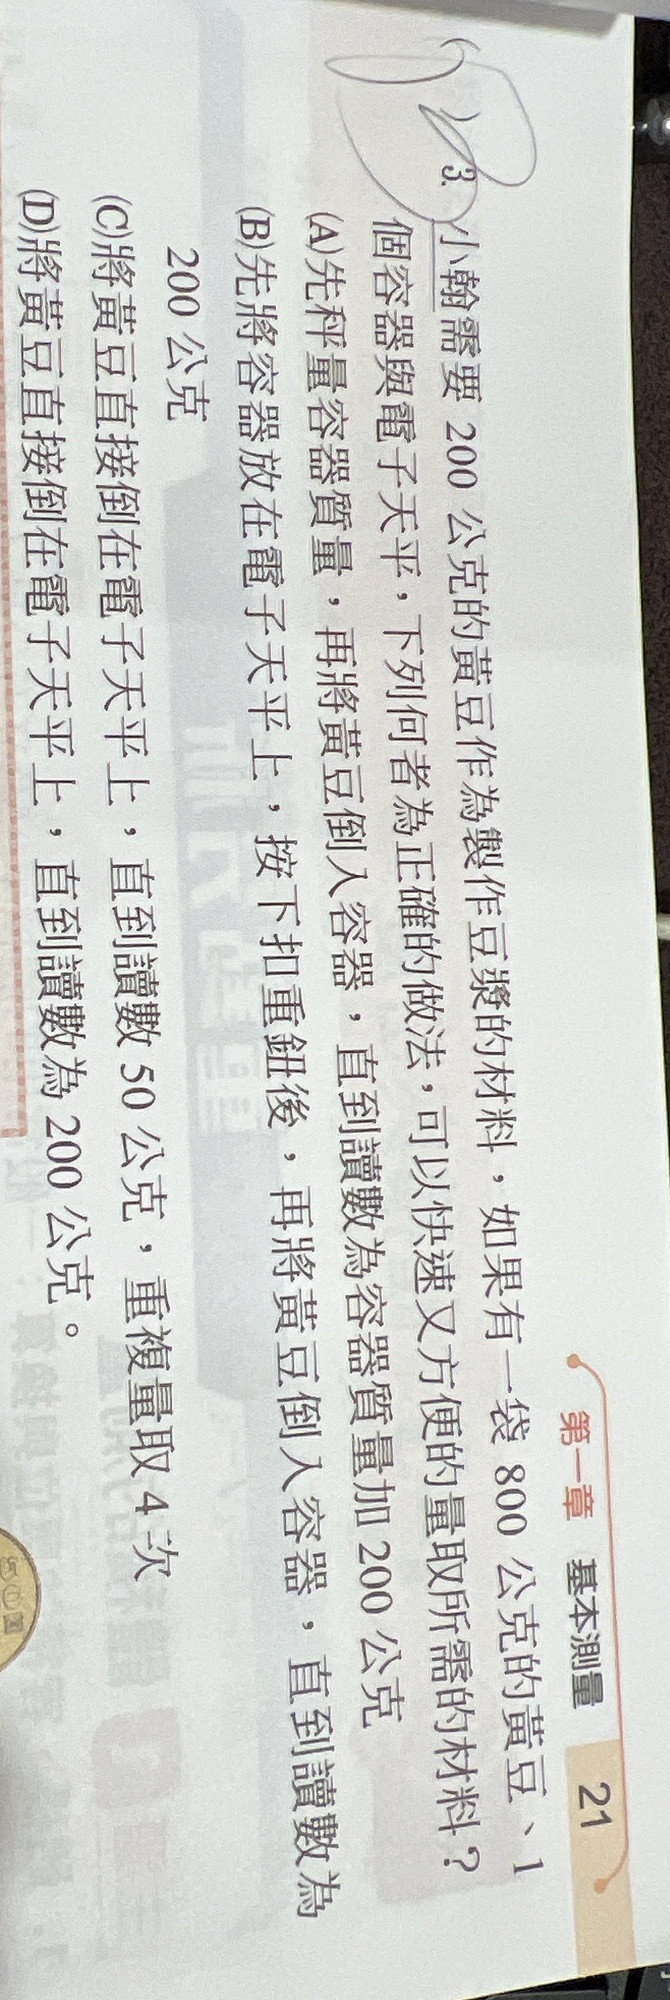 第一章 基本測量 21
( )3. 小翰需要 200 公克的黃豆作為製作豆漿的材料，如果有一袋 800 公克的黃豆、1
個容器與電子天平，下列何者為正確的做法，可以快速又方便的量取所需的材料？
(A)先秤量容器質量，再將黃豆倒入容器，直到讀數為容器質量加 200 公克
(B)先將容器放在電子天平上，按下扣重鈕後，再將黃豆倒入容器，直到讀數為
200 公克
(C)將黃豆直接倒在電子天平上，直到讀數 50 公克，重複量取 4 次
(D)將黃豆直接倒在電子天平上，直到讀數為 200 公克。